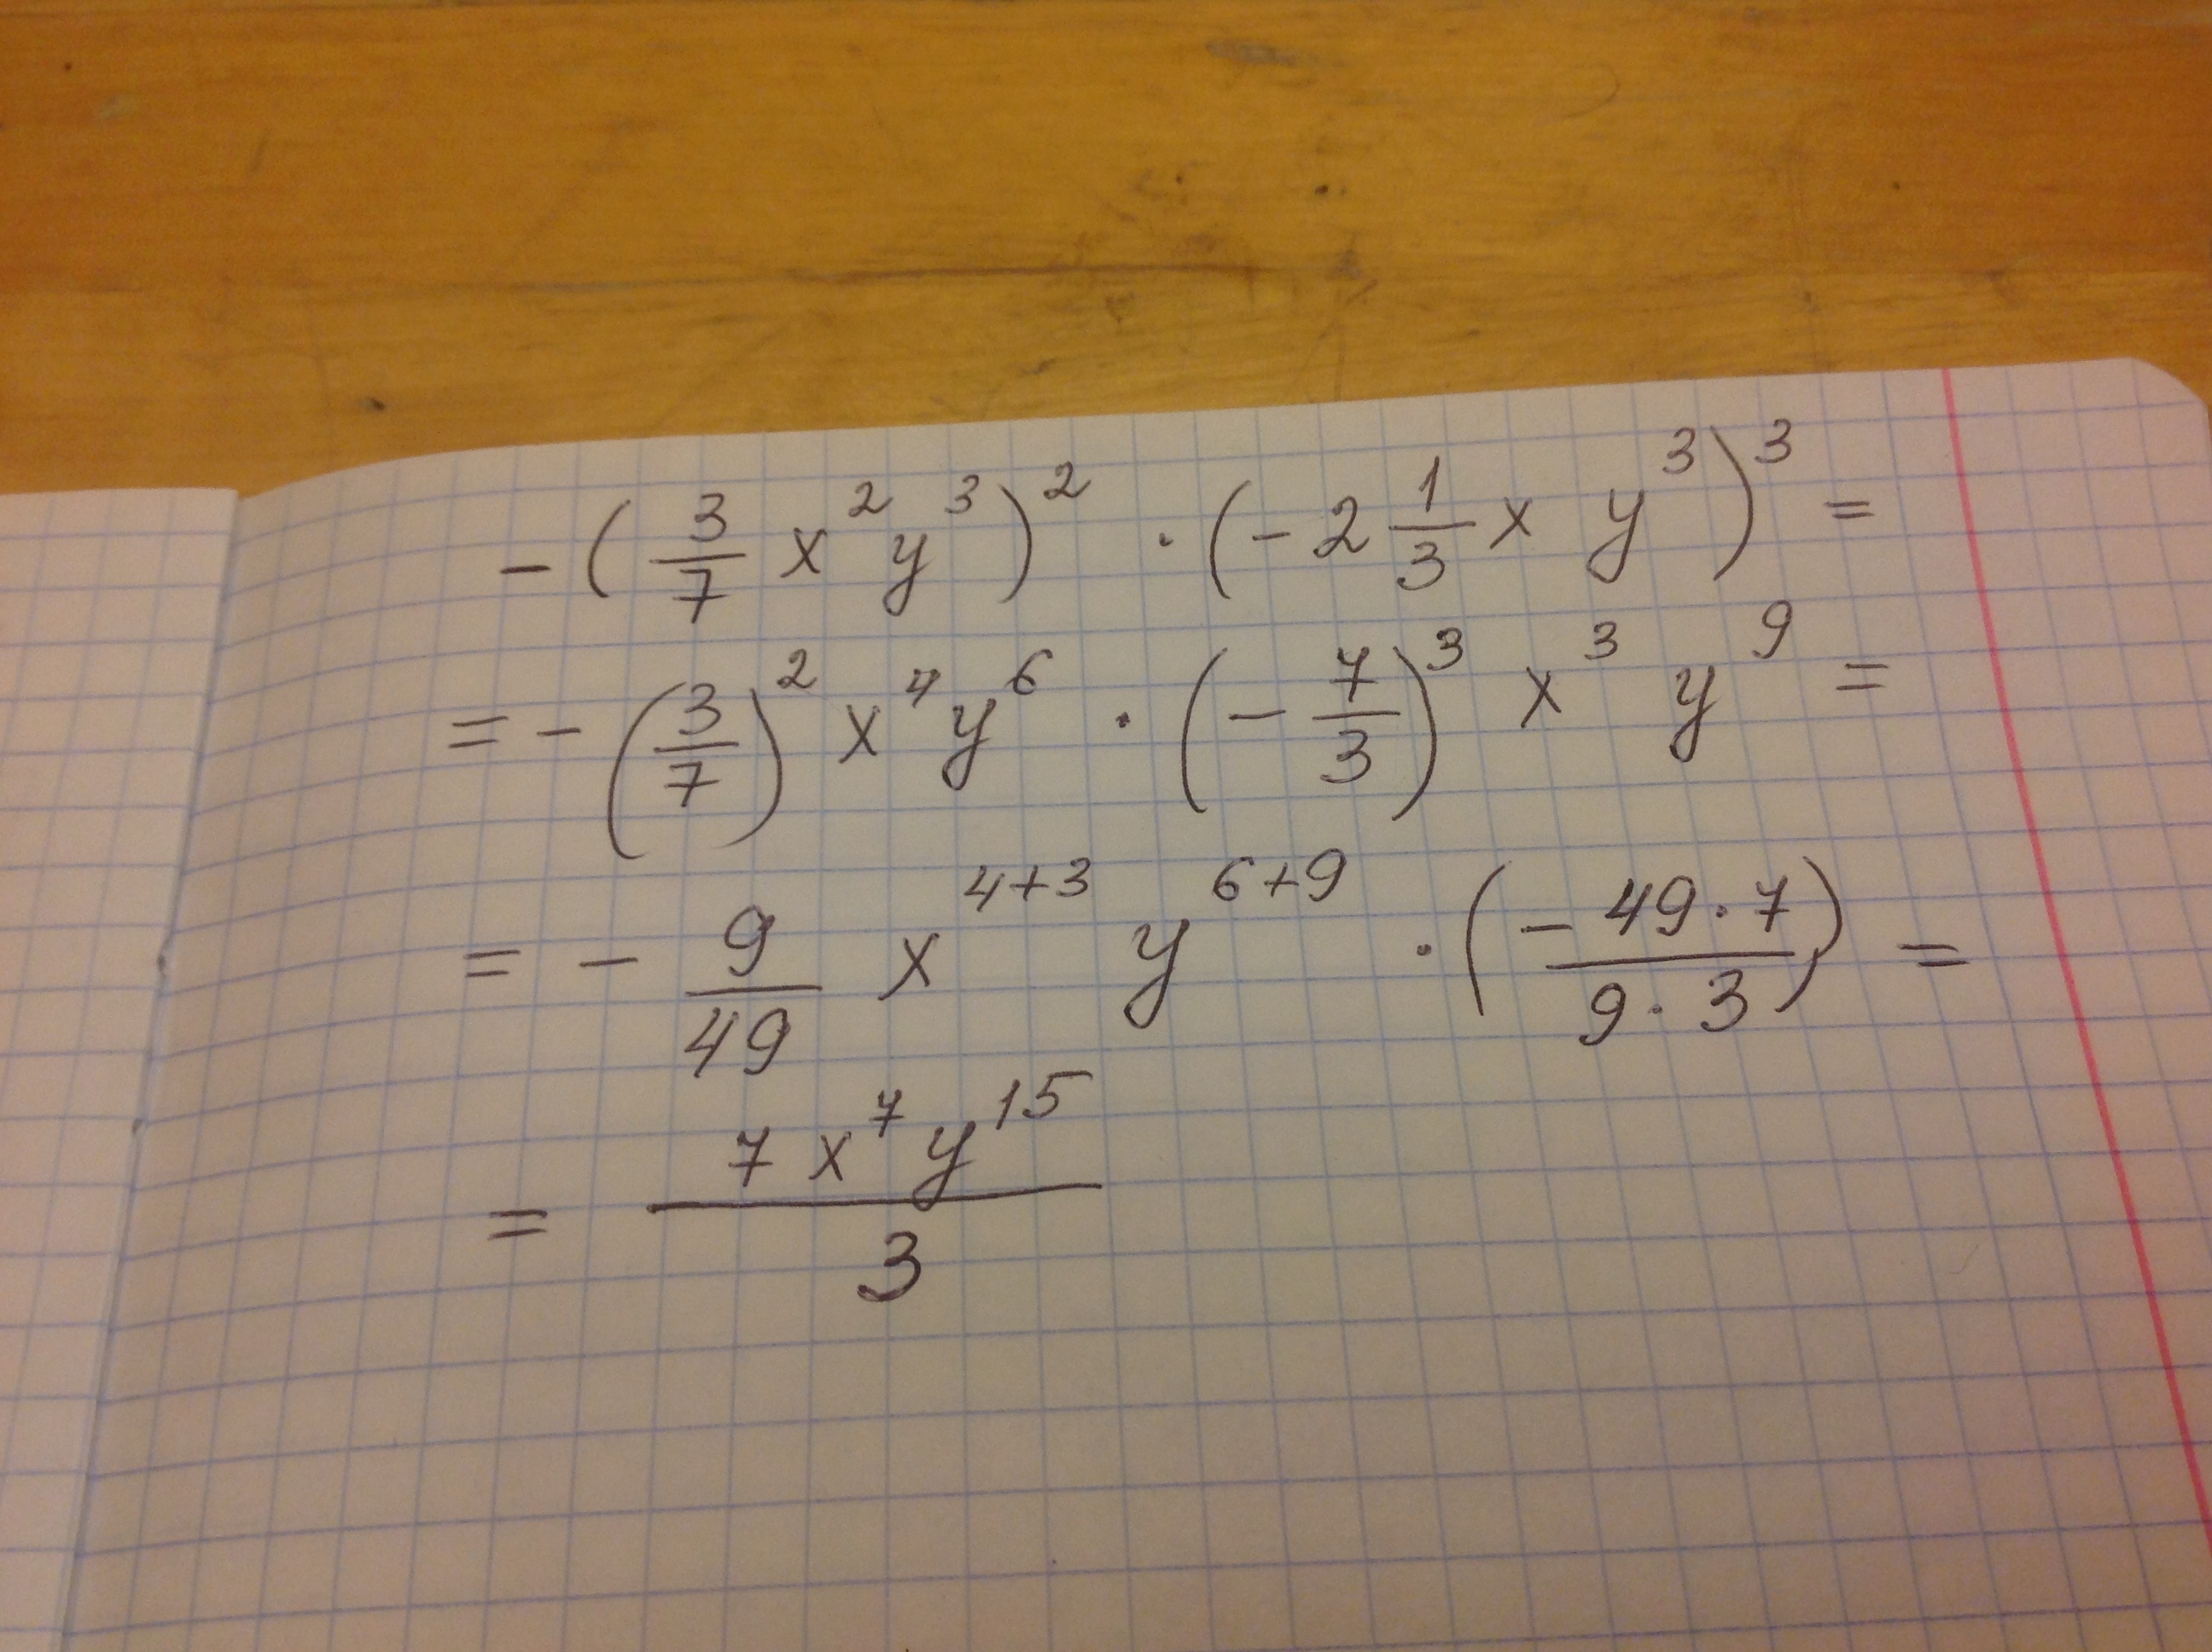 -(3/7 x²y³)² · (-2 1/3 x y³)³ =
= -(3/7)² x⁴y⁶ · (-7/3)³ x³ y⁹ =
= - 9/49 x⁴⁺³ y⁶⁺⁹ · (-49·7/9·3) =
= 7x⁷y¹⁵/3